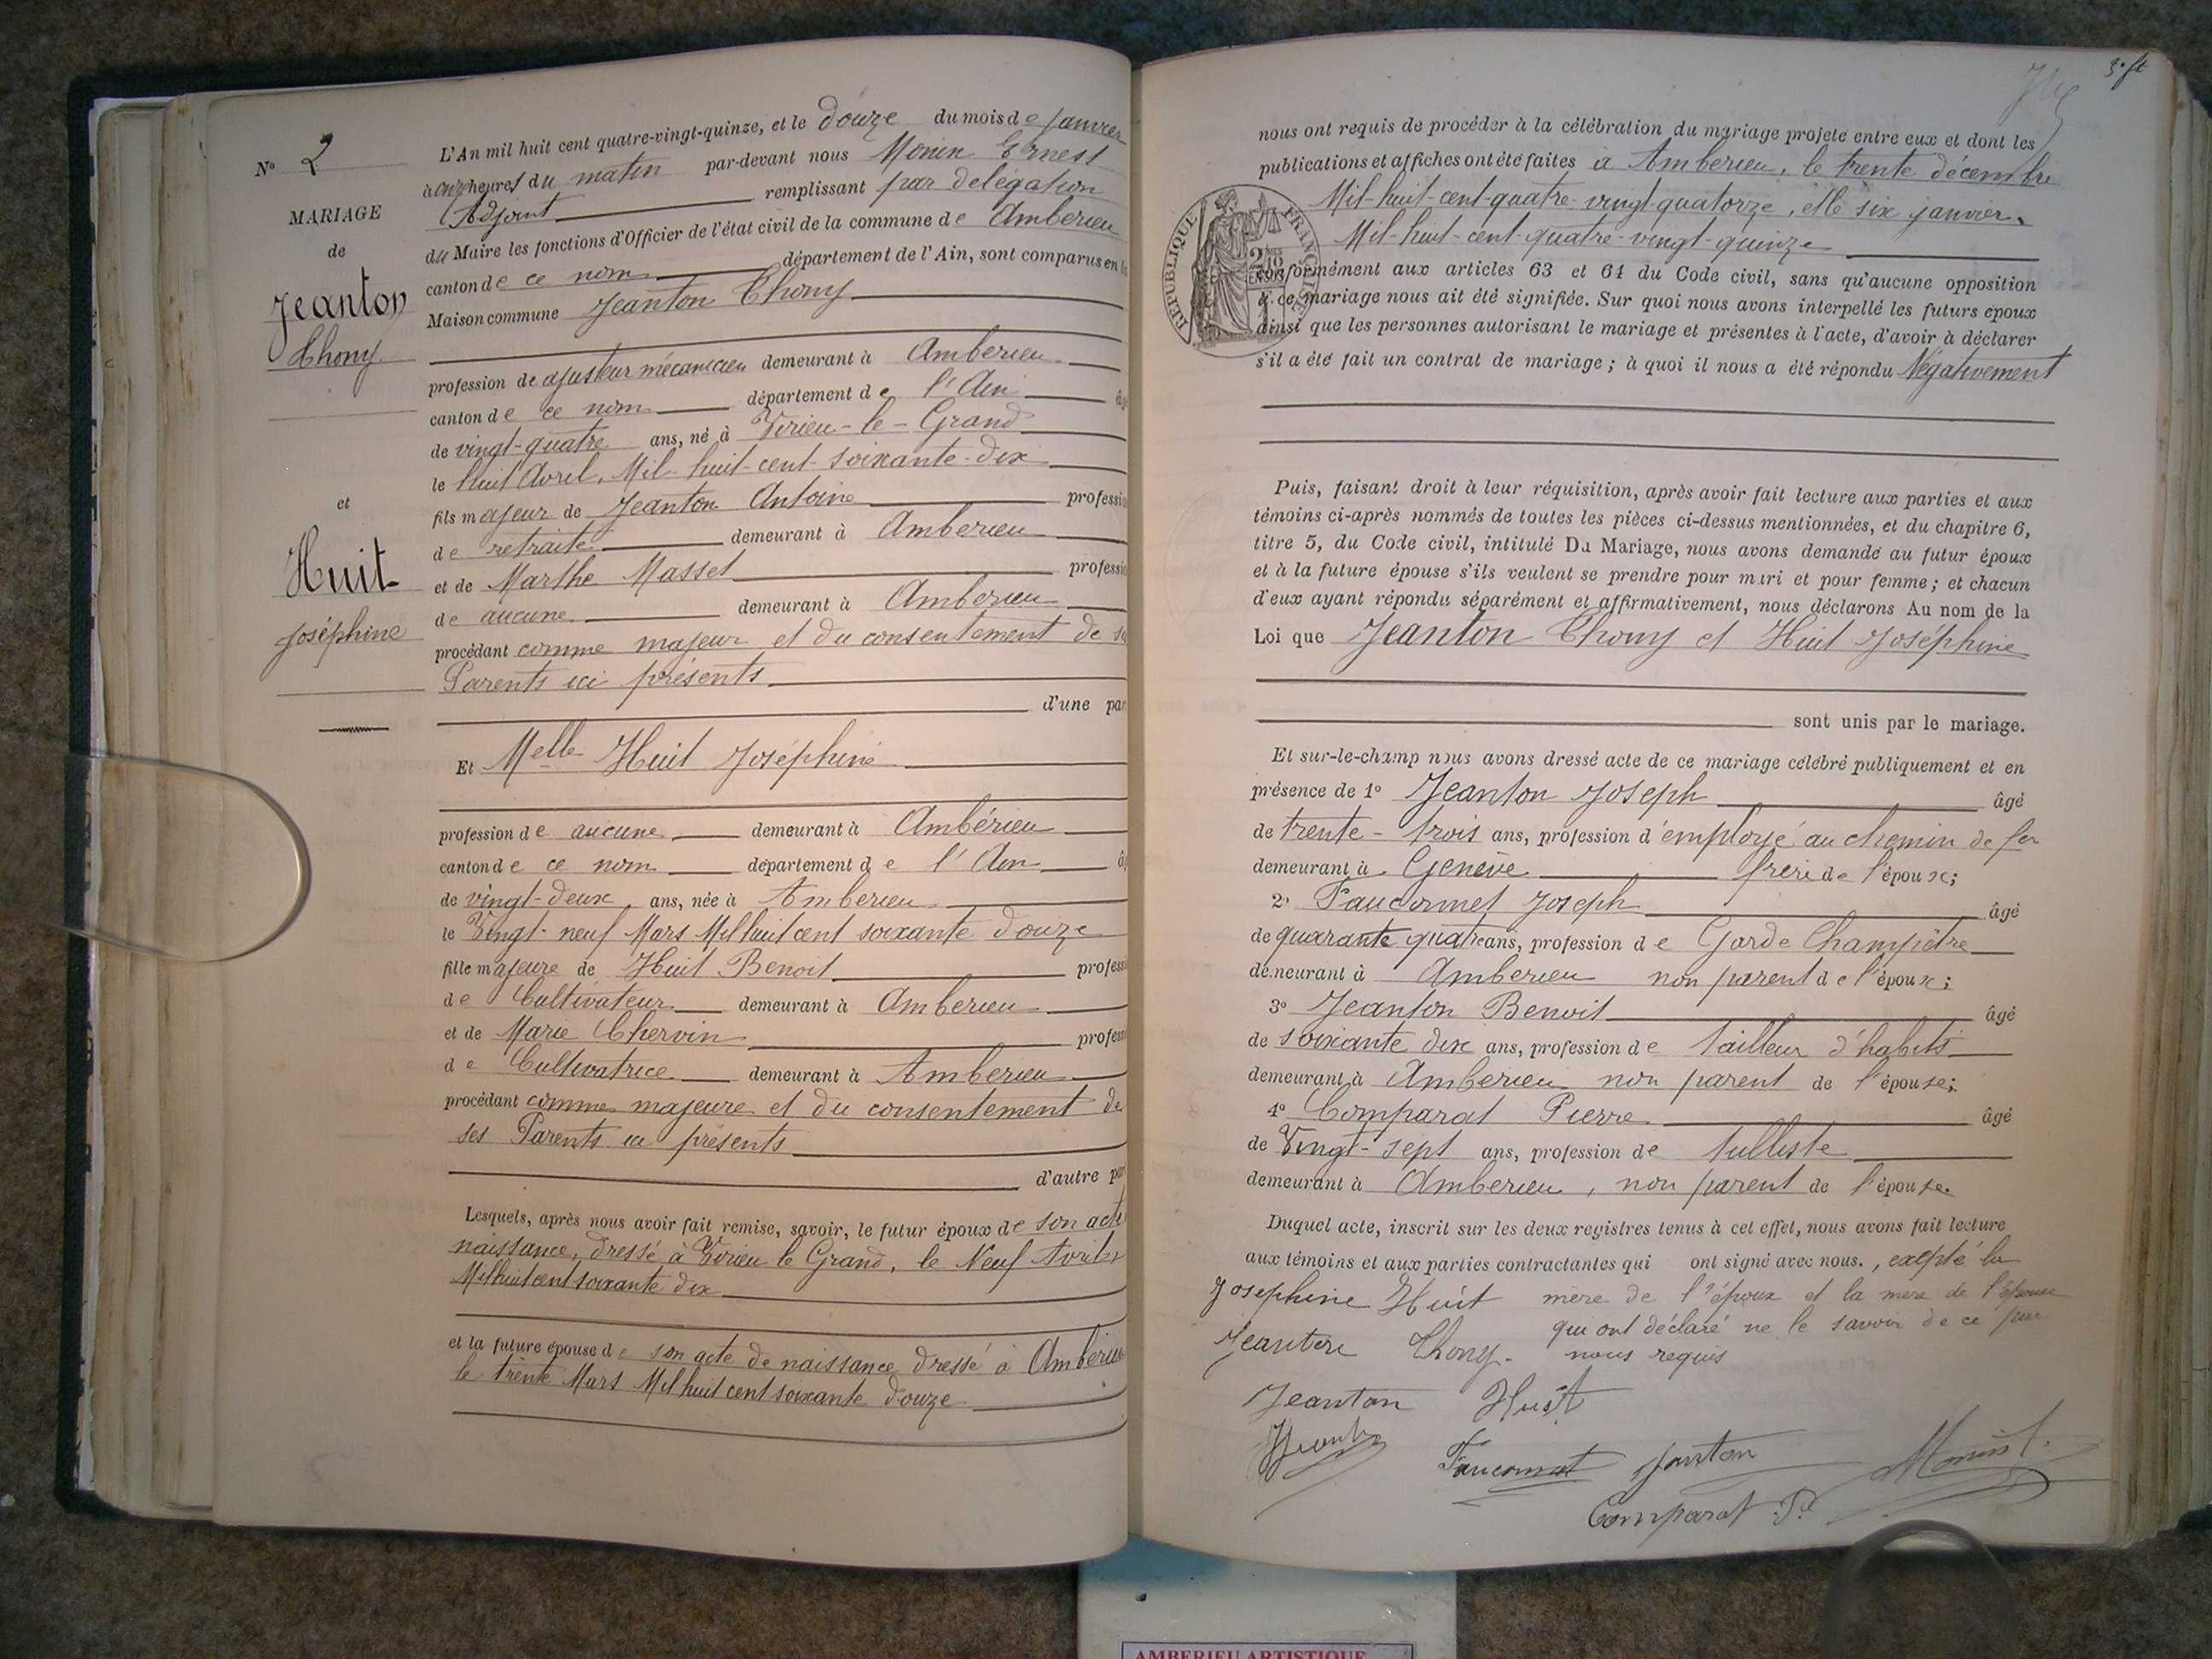 N° 2
MARIAGE
de
Jeanton
Thony
et
Huit
Joséphine
L'An mil huit cent quatre-vingt-quinze, et le douze du mois de janvier
à onze heures du matin par-devant nous Monin Ernest
Adjoint remplissant par délégation
du Maire les fonctions d'Officier de l'état civil de la commune de Amberieu
canton de ce nom département de l'Ain, sont comparus en la
Maison commune Jeanton Thony
profession de ajusteur mécanicien demeurant à Amberieu
canton de ce nom département de l'Ain âg
de vingt-quatre ans, né à Virieu-le-Grand
le huit Avril, Mil-huit-cent-soixante-dix
fils majeur de Jeanton Antoine professi
de retraité demeurant à Amberieu
et de Marthe Masset professi
de aucune demeurant à Amberieu
procédant comme majeur et du consentement de se
Parents ici présents
d'une par
Et Melle Huit Joséphine
profession de aucune demeurant à Ambérieu
canton de ce nom département de l'Ain â
de vingt-deux ans, née à Amberieu
le Vingt-neuf Mars Mil huit cent soixante douze
fille majeure de Huit Benoit profess
de Cultivateur demeurant à Amberieu
et de Marie Chervin profess
de Cultivatrice demeurant à Amberieu
procédant comme majeure et du consentement de
ses Parents ici présents
d'autre par
Lesquels, après nous avoir fait remise, savoir, le futur époux de son acte
naissance, dressé à Virieu le Grand, le Neuf Avril
Mil huit cent soixante dix
et la future épouse de son acte de naissance dressé à Amberieu
le trente Mars Mil huit cent soixante douze
3e ft
nous ont requis de procéder à la célébration du mariage projeté entre eux et dont les
publications et affiches ont été faites à Amberieu, le trente décembre
Mil-huit-cent-quatre-vingt-quatorze, et le six janvier
Mil-huit-cent-quatre-vingt-quinze
RÉPUBLIQUE FRANÇAISE
conformément aux articles 63 et 64 du Code civil, sans qu'aucune opposition
à ce mariage nous ait été signifiée. Sur quoi nous avons interpellé les futurs époux
ainsi que les personnes autorisant le mariage et présentes à l'acte, d'avoir à déclarer
s'il a été fait un contrat de mariage; à quoi il nous a été répondu Négativement
Puis, faisant droit à leur réquisition, après avoir fait lecture aux parties et aux
témoins ci-après nommés de toutes les pièces ci-dessus mentionnées, et du chapitre 6,
titre 5, du Code civil, intitulé Du Mariage, nous avons demandé au futur époux
et à la future épouse s'ils veulent se prendre pour mari et pour femme; et chacun
d'eux ayant répondu séparément et affirmativement, nous déclarons Au nom de la
Loi que Jeanton Thony et Huit Joséphine
sont unis par le mariage.
Et sur-le-champ nous avons dressé acte de ce mariage célébré publiquement et en
présence de 1° Jeanton Joseph âgé
de trente-trois ans, profession d'employé au chemin de fer
demeurant à Genève frère de l'époux;
2° Fauconnet Joseph âgé
de quarante quatre ans, profession de Garde Champêtre
demeurant à Amberieu non parent de l'époux;
3° Jeanton Benoit âgé
de soixante dix ans, profession de tailleur d'habits
demeurant à Amberieu non parent de l'épouse;
4° Comparat Pierre âgé
de Vingt-sept ans, profession de tulliste
demeurant à Amberieu, non parent de l'épouse.
Duquel acte, inscrit sur les deux registres tenus à cet effet, nous avons fait lecture
aux témoins et aux parties contractantes qui ont signé avec nous., excepté la
Josephine Huit mère de l'époux et la mère de l'épouse
qui ont déclaré ne le savoir de ce par
Jeanton Thony. nous requis
Jeanton Huit
Jeanton
Fauconnet Jeanton Monin E.
Comparat P.
AMBERIEU ARTISTIQUE